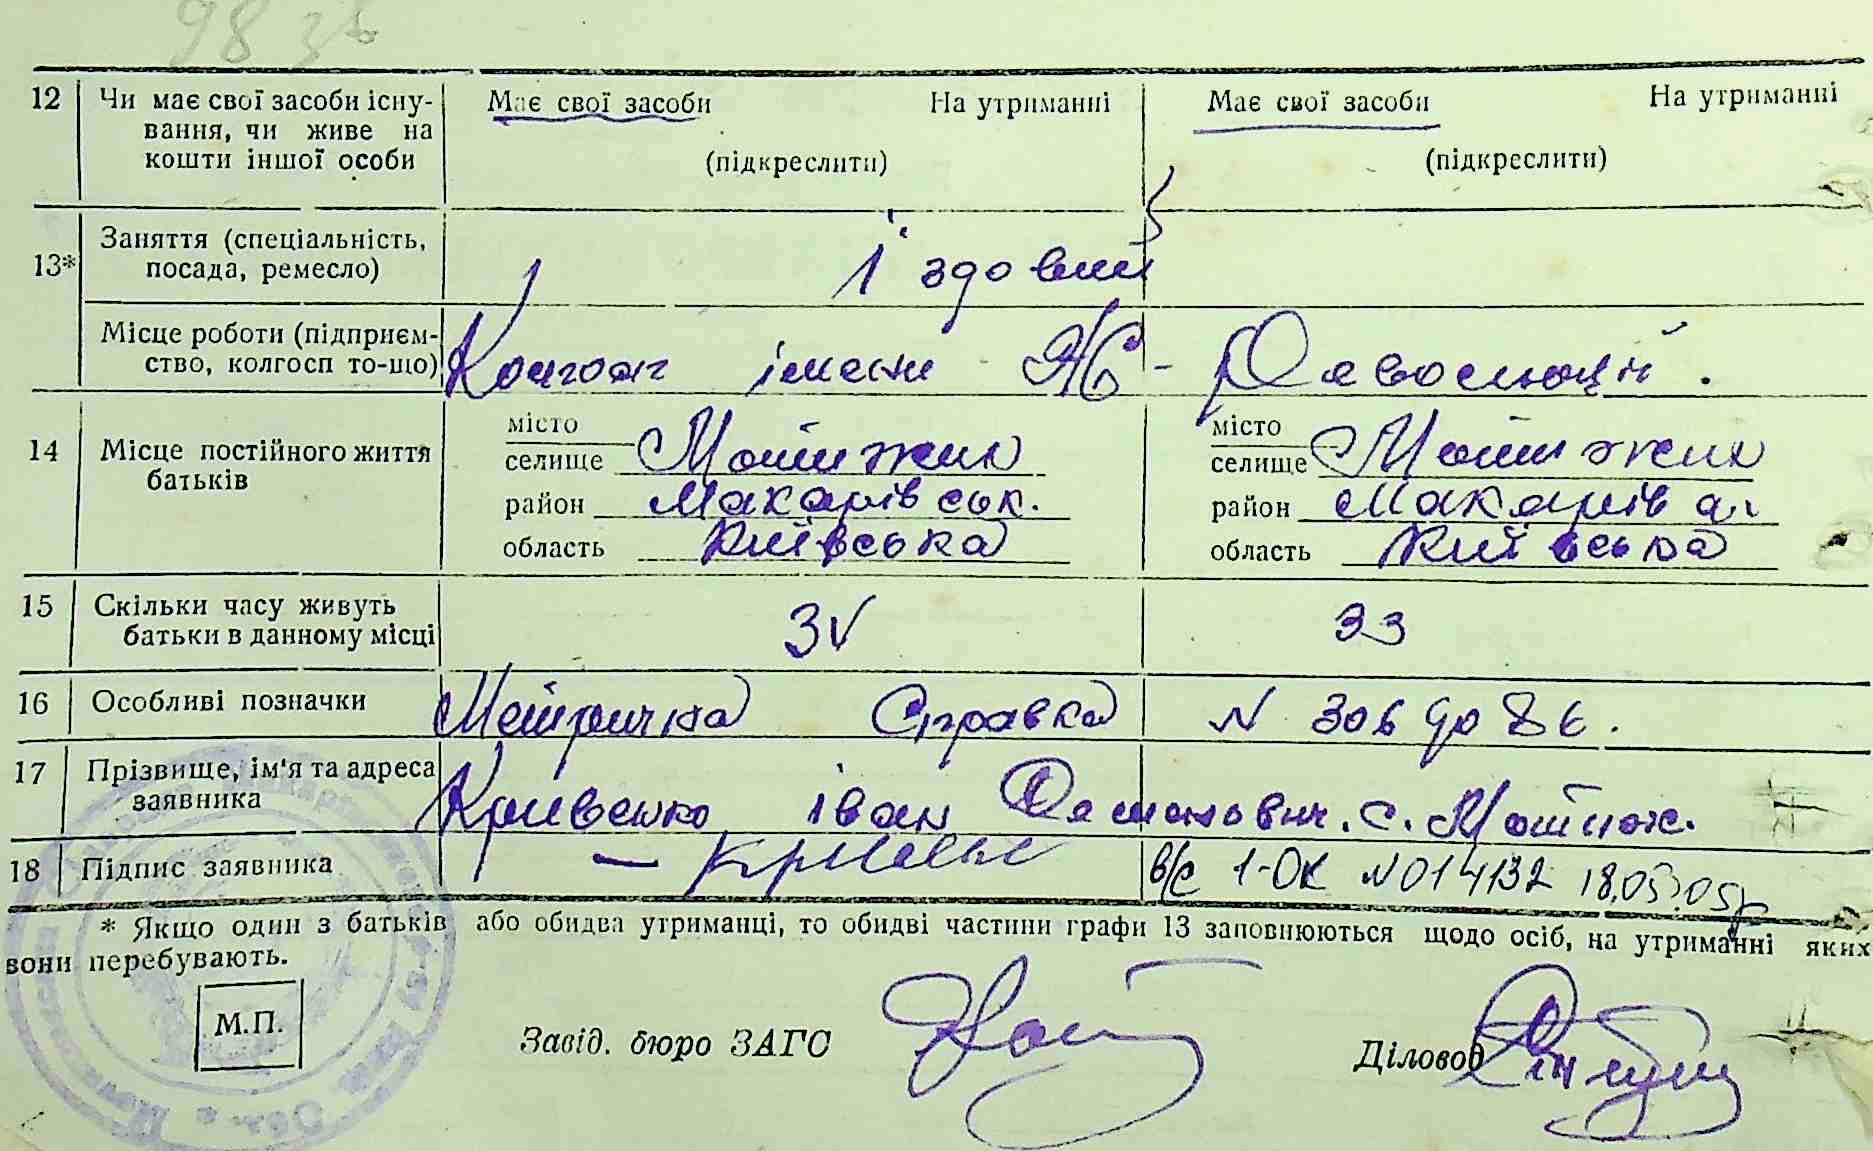 98 зв
12 Чи має свої засоби існу- Має свої засоби На утриманні Має свої засоби На утриманні
вання, чи живе на
кошти іншої особи (підкреслити) (підкреслити)
13* Заняття (спеціальність,
посада, ремесло) їздовий
Місце роботи (підприєм-
ство, колгосп то-що) Колгосп імени Революції.
14 Місце постійного життя батьків
місто
селище Мотижин
район Макарівськ.
область Київська
місто
селище Мотижин
район Макарів
область Київська
15 Скільки часу живуть
батьки в данному місці 33
16 Особливі позначки Метрична Справка N 306
17 Прізвище, ім'я та адреса
заявника Кривенко іван с. Мотиж.
18 Підпис заявника в/с 1-ОК N014132 18.05.05р
* Якщо один з батьків або обидва утриманці, то обидві частини графи 13 заповнюються щодо осіб, на утриманні яких
вони перебувають.
М.П.
Завід. бюро ЗАГС Діловод